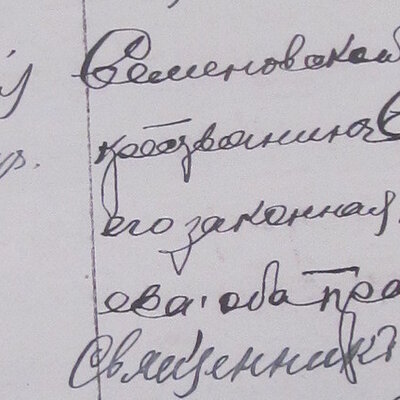 Семеновской
крестьянинъ С
его законная
ева. оба пра
Священникъ